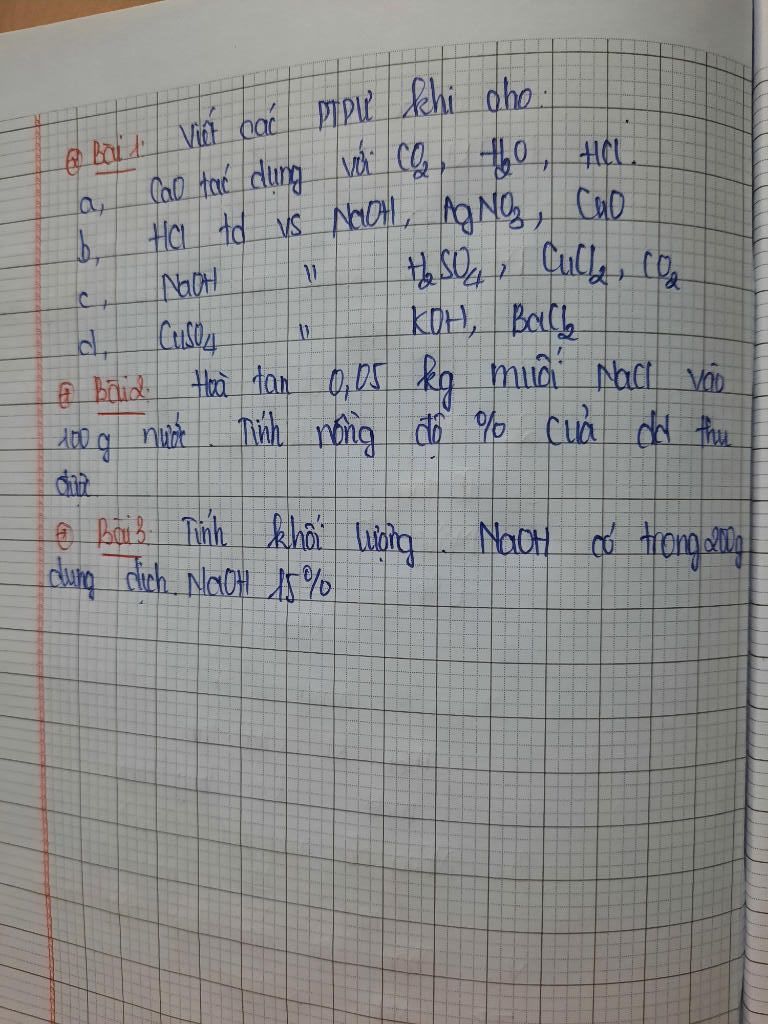 ⊕ Bài 1. Viết các PTPƯ khi cho:
a, CaO tác dụng với CO₂, H₂O, HCl.
b, HCl td vs NaOH, AgNO₃, CuO
c, NaOH " H₂SO₄, CuCl₂, CO₂
d, CuSO₄ " KOH, BaCl₂
⊕ Bài 2. Hoà tan 0,05 kg muối NaCl vào
100g nước. Tính nồng độ % của dd thu
được
⊕ Bài 3. Tính khối lượng. NaOH có trong 200g
dung dịch. NaOH 15%